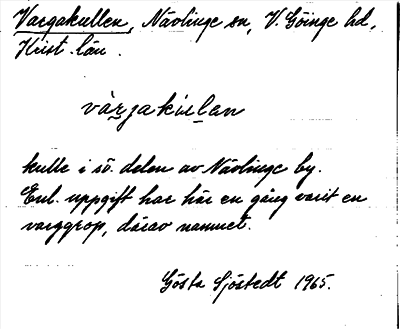 Vargakullen, Nävlinge sn, V. Göinge hd,
Krist. län.
kulle i sö. delen av Nävlinge by.
Enl. uppgift har här en gång varit en
varggrop, därav namnet.
Gösta Sjöstedt 1965.